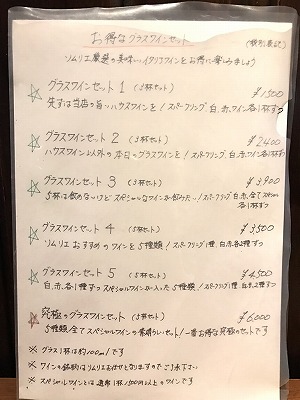 お得なグラスワインセット
(税別表記)
ソムリエ厳選の美味しいイタリアワインをお得に楽しみましょう
☆ グラスワインセット 1 (3杯セット) ¥1500
先ずは当店の旨いハウスワインを！スパークリング、白、赤、ワイン各1杯ずつ
☆ グラスワインセット 2 (3杯セット) ¥2400
ハウスワイン以外の本日のグラスワインを！スパークリング、白、赤、ワイン各1杯
☆ グラスワインセット 3 (3杯セット) ¥3900
5杯は飲めないけどスペシャルなワインが飲みたい！スパークリング、白、赤、全てスペシャル
各1杯ずつ
☆ グラスワインセット 4 (5杯セット) ¥3500
ソムリエおすすめのワインを5種類！スパークリング1種、白、赤各2種ずつ
☆ グラスワインセット 5 (5杯セット) ¥4500
白、赤、各1種ずつスペシャルワインが入った5種類！スパークリング1種、白、赤2種ずつ
☆ 究極のグラスワインセット (5杯セット) ¥6000
5種類全てスペシャルワインの素晴らしいセット！一番お得な究極のセットです
※ グラス1杯は約100mlです
※ ワインの銘柄はソムリエお任せとなりますのでご了承下さい
※ スペシャルワインとは通常1杯1500円以上のワインです